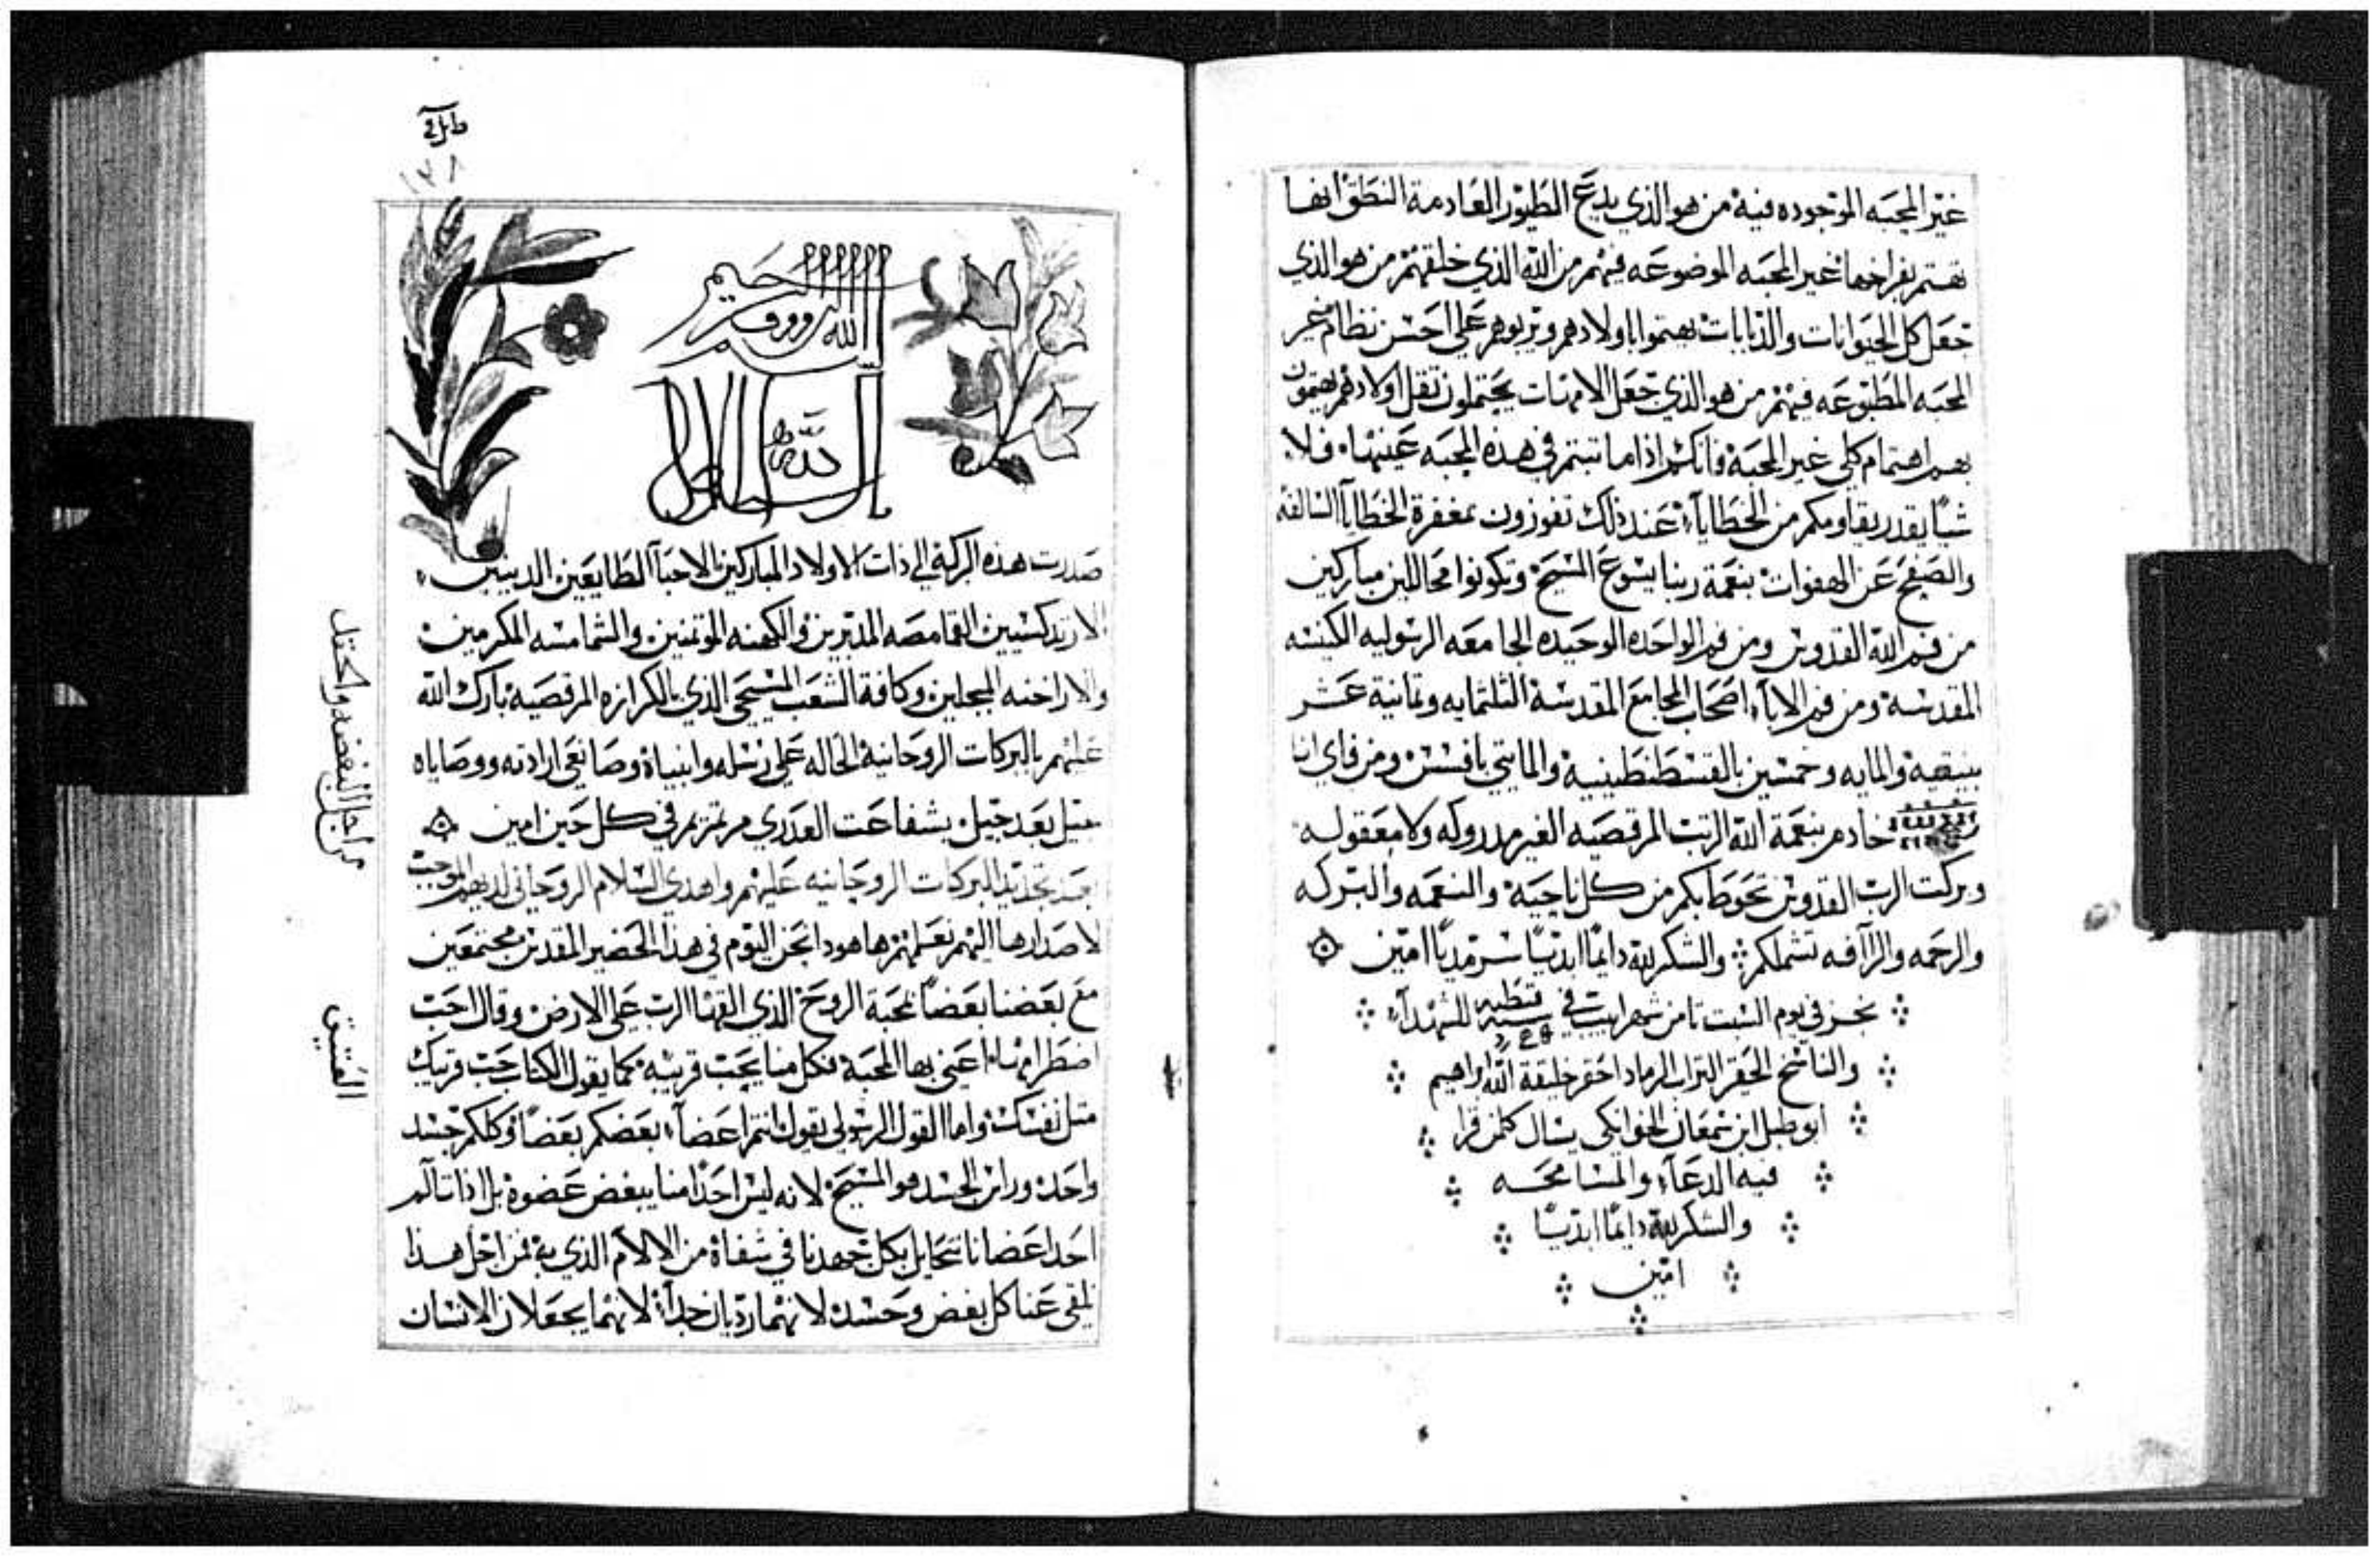 غير المحبه الموجوده فيه من هو الذي يدع الطيور العادمة النطق انها
تهتم بفراخها غير المحبه الموضوعه فيهم من الله الذي خلقهم من هو الذي
جعل كل الحيوانات والدبابات يهتموا باولادهم ويربوهم علي احسن نظام غير
المحبه المطبوعه فيهم من هو الذي جعل الامهات يحتملون تقل اولادهم يهتمون
بهم اهتمام كلي غير المحبة فانكم اذا ما تبتم في هذه المحبه عينها فلا
شيا يقدر يقاومكم من الخطايا عند ذلك تفوزون بمغفرة الخطايا السالفه
والصفح عن الهفوات بنعمة ربنا يسوع المسيح وتكونوا محاللين مباركين
من فم الله القدوس ومن فم الواحده الوحيده الجامعه الرسوليه الكنيسه
المقدسة ومن فم الاباء اصحاب المجامع المقدسة الثلثمايه وثمانية عشر
بنيقية والمايه وخمسين بالقسطنطينية والمايتي بافسس ومن فاي انا
خادم بنعمة الله الرتب المرقصيه الغير مدروكه ولا معقوله
وبركت الرب القدوس تحوطا بكم من كل ناحية والنعمه والبركه
والرحمه والراافه تشملكم والشكر لله دايمًا ابديًا سرمديًا امين
نجز في يوم السبت تامن شهر ابيب في سنة قبطيه للشهداء
والناسخ الحقير التراب الرماد احقر خليقة الله ابراهيم
ابو طبل ابن سمعان الخوانكي يسال كلمن قرا
فيه الدعاء والمسامحه
والشكر لله دايمًا ابديًا
امين
١٢٨
بسم الله الرووف الرحيم
صدرت هذه البركة الي ذات الاولاد المباركين الاحبا الطايعين الديينين
الارتدكسيين القمامصه المدبرين والكهنه الموتمنين والشمامسه المكرمين
والاراخنه المبجلين وكافة الشعب المسيحي الذي بالكرازه المرقصية بارك الله
عليهم بالبركات الروحانية الحاله علي رسله وانبياه وصانعي ارادته ووصاياه
جيل بعد جيل بشفاعت العدري مرتمريم في كل حين امين
بعد تجديد البركات الروحانيه عليهم واهدي السلام الروحاني لديهم الموجب
لاصدارها اليهم نعلمهم هاهودا نحن اليوم في هذا الحضير المقدس مجتمعين
مع بعضنا بعضًا بمحبة الروح الذي القها الرب علي الارض وقال احب
اضطرامها اعني بها المحبة فكل منا يحب قريبه كما يقول الكتاب حب قريبك
متل نفسك واما القول الرسولي يقول انتم اعضاء بعضكم بعضًا وكلكم جسد
واحد وراس الجسد هو المسيح لانه ليس احدًا منا يبغض عضوه بل اذا تالم
احد اعضانا نتحايل بكل جهدنا في شفاه من الالام الذي به فمن اجل هذا
نلقي عنا كل بغض وحسد لانهما رديان جدًا لانهما يجعلان الانسان
من اجل البغضه والحقد
العتيق